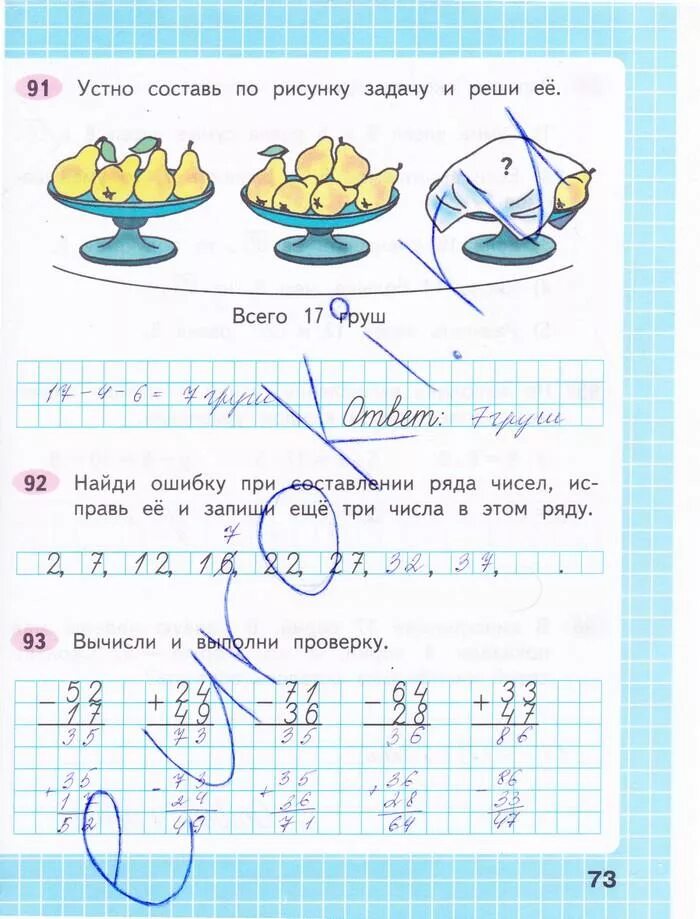 91 Устно составь по рисунку задачу и реши её.
?
Всего 17 груш
17 - 4 - 6 = 7 груш
Ответ: 7 груш
92 Найди ошибку при составлении ряда чисел, ис-
правь её и запиши ещё три числа в этом ряду.
7
2, 7, 12, 16, 22, 27, 32, 37, .
93 Вычисли и выполни проверку.
- 52 + 24 - 71 - 64 + 33
17 49 36 28 47
35 73 35 36 86
+ 35 - 73 + 35 + 36 - 86
17 24 36 28 33
52 49 71 64 47
73